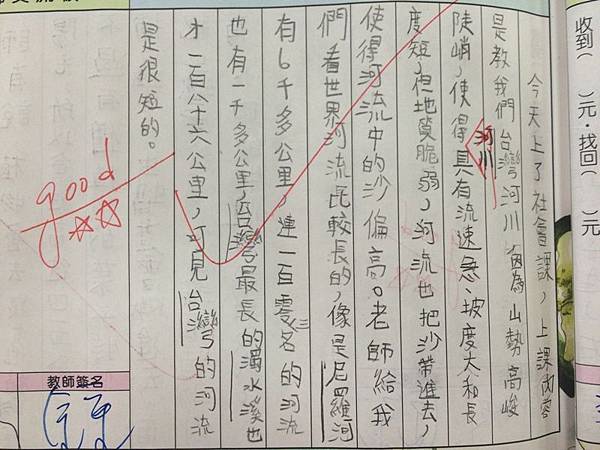 收到( )元,找回( )元
今天上了社會課,上課內容
是教我們台灣河川因為山勢高峻
陡峭,使得河川具有流速急坡度大和長
度短,但地質脆弱,河流也把沙帶進去,
使得河流中的沙偏高。老師給我
們看世界河流比較長的,像是尼羅河
有6千多公里,連一百零三名的河流
也有一千多公里,台灣最長的濁水溪也
才一百八十六公里,可見台灣的河流
是很短的。
good
教師簽名